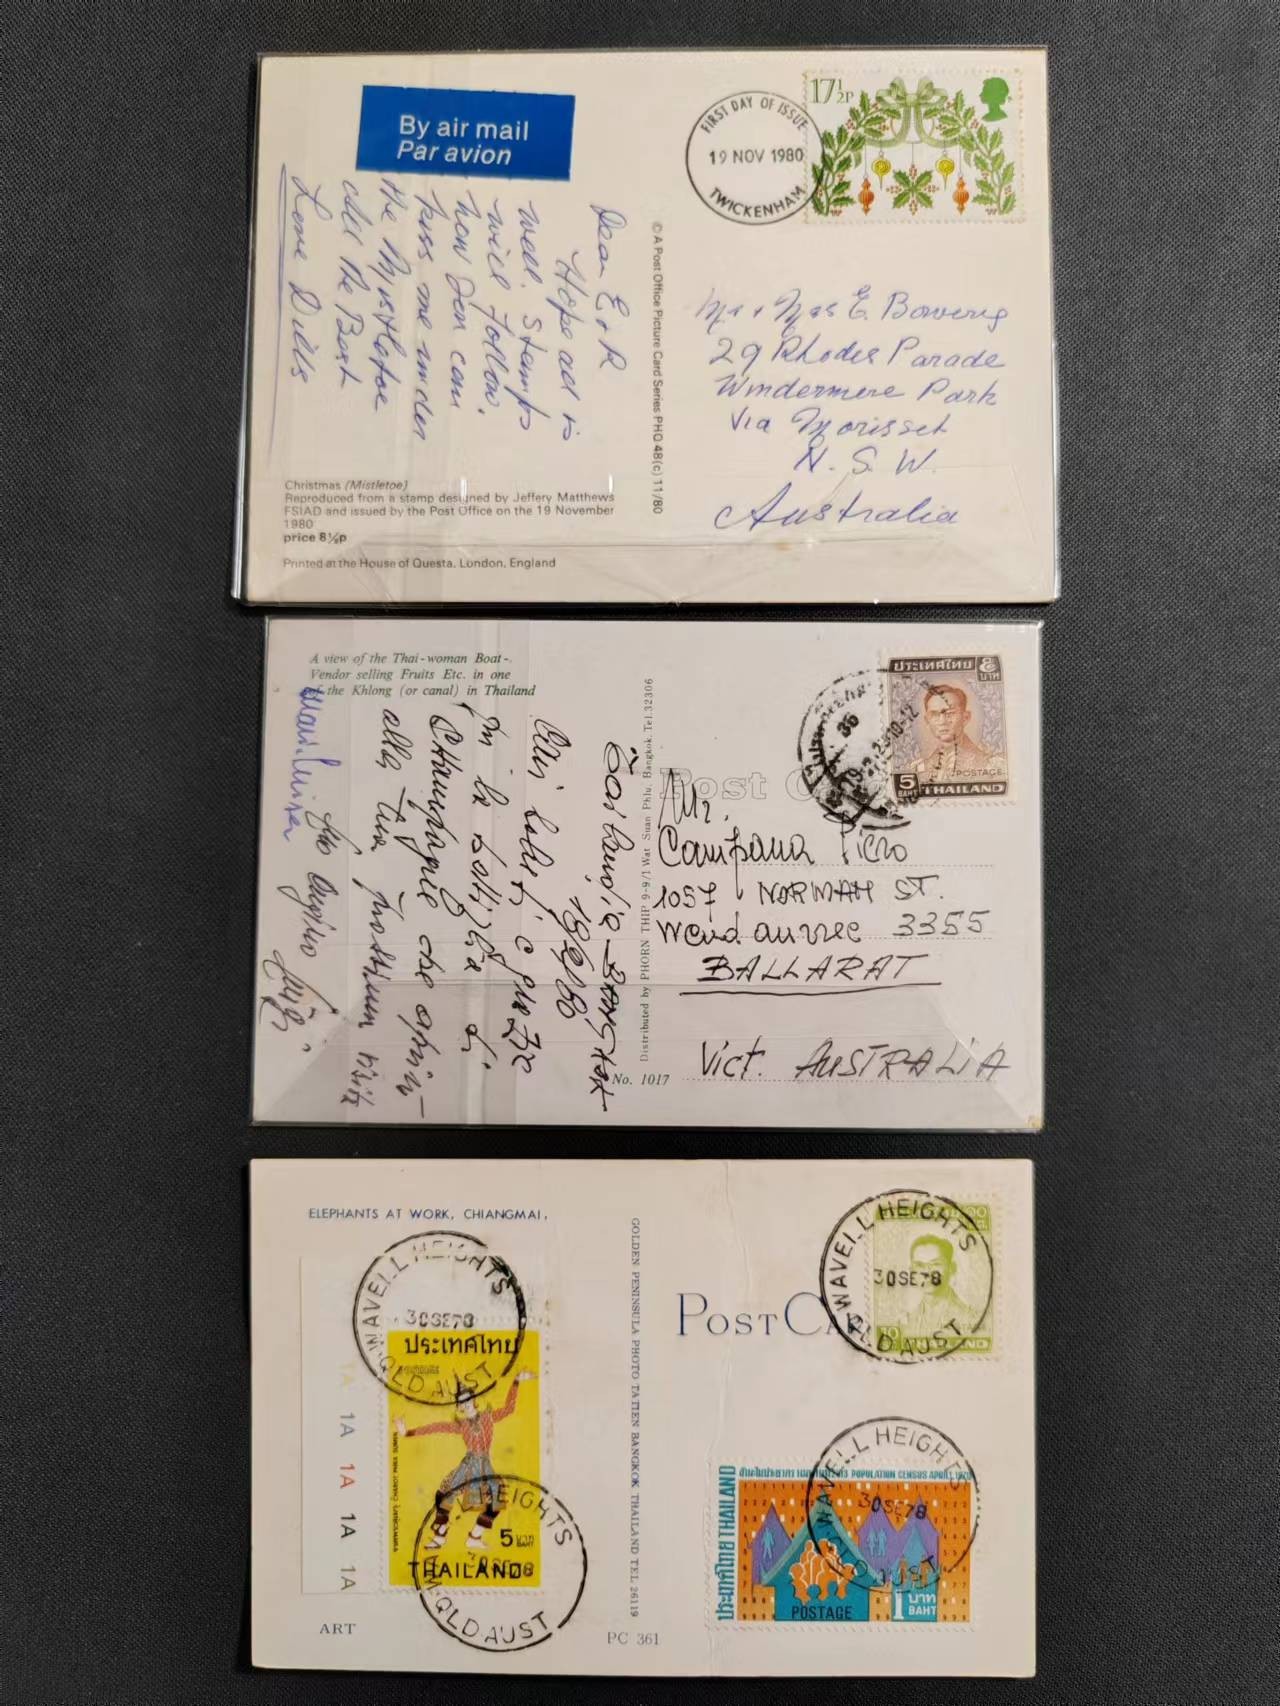 By air mail
Par avion
FIRST DAY OF ISSUE
19 NOV 1980
TWICKENHAM
17½P
Dear E & R
Hope all is
well. Stamps
will follow.
now you can
kiss me under
the Mistletoe
All the Best
Love Dills
© A Post Office Picture Card Series PHQ 48(c) 11/80
Mr & Mrs E. Bowering
29 Rhodes Parade
Windermere Park
Via Morisset
N. S. W.
Australia
Christmas (Mistletoe)
Reproduced from a stamp designed by Jeffery Matthews
FSIAD and issued by the Post Office on the 19 November
1980
price 8½p
Printed at the House of Questa, London, England
A view of the Thai-woman Boat-
Vendor selling Fruits Etc. in one
of the Khlong (or canal) in Thailand
ประเทศไทย
๕
บาท
5
BAHT
POSTAGE
THAILAND
Post Card
Distributed by PHORN THIP 9-9/1 Wat Suan Phlu, Bangkok. Tel. 32306
Tailandia - BANGKOK
in la bottiglia di
CHAMPAGNE che apri-
alla tua prossima visita
Luigi
Mr.
Campana Piero
1057 NORMAN ST.
Wendauree 3355
BALLARAT
Vict. AUSTRALIA
No. 1017
ELEPHANTS AT WORK, CHIANGMAI,
WAVELL HEIGHTS
30SE78
QLD AUST
ประเทศไทย
5 บาท
BAHT
THAILAND
WAVELL HEIGHTS
30SE78
QLD AUST
1A
1A
1A
1A
1A
GOLDEN PENINSULA PHOTO TATIEN BANGKOK THAILAND TEL 26119
POST CARD
WAVELL HEIGHTS
30SE78
QLD AUST
THAILAND
WAVELL HEIGHTS
30SE78
QLD AUST
POPULATION CENSUS APRIL 1970
ประเทศไทย THAILAND
POSTAGE
1 บาท
BAHT
ART
PC 361